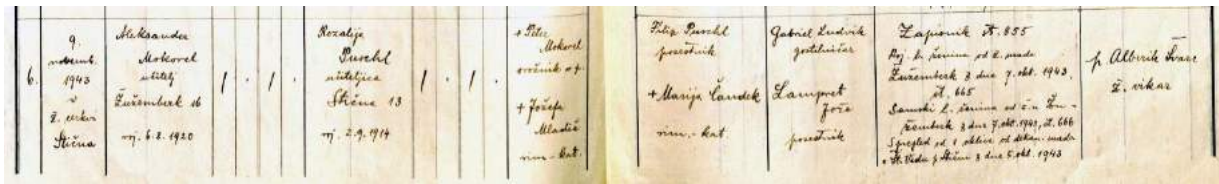 6.
9.
novemb.
1943
v
ž. cerkvi
Stična
Aleksander
Mokorel
učitelj
Žužemberk 16
roj. 6.2.1920
Rozalija
Puschl
učiteljica
Stična 13
roj. 2.9.1914
+ Peter
Mokorel
+ Jožefa
Mladič
rim.-kat.
Filip Puschl
posestnik
+ Marija Čandek
rim.-kat.
Gabriel Ludvik
gostilničar
Lampret
Jože
posestnik
Zapisnik št. 855
Roj. k. ženina od ž. urada
Žužemberk z dne 7. okt. 1943,
št. 665
Samski l. ženina od ž. u. Žu-
žemberk z dne 7. okt. 1943, št. 666
Spregled od 1 oklica od dekan. urada
Št. Vidu p. Stični z dne 5. okt. 1943
p. Alberik Švare
ž. vikar